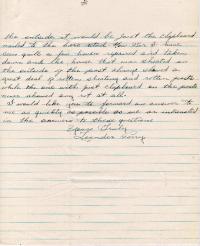 the outside it would be just the clapboard
nailed to the bare stud. Mr. Van & I have
seen quite a few houses repaired and taken
down and the house that was sheated on
the outside of the post always showed a
great deal of rotten sheating and rotten posts
while the one with just clapboard on the posts
never showed any rot at all.
I would like you to forward an answer to
me as quickly as possible as we are interested
in the answers to these questions.
Yours Truly,
Leander Perry